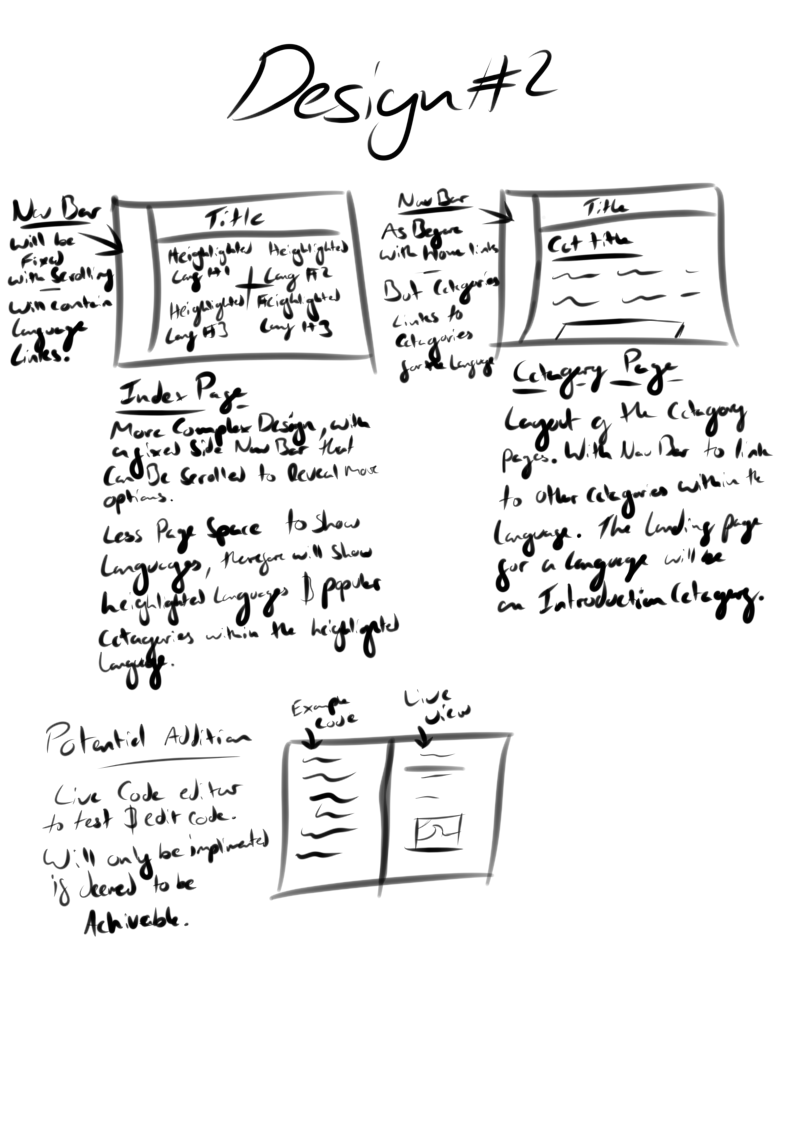 Design #2
Nav Bar
will be
Fixed
with Scrolling
Will contain
Language
Links.
Title
Heighlighted
Lang #1
Heighlighted
Lang #2
Heighlighted
Lang #3
Heighlighted
Lang #3
Index Page
More Complex Design, with
a fixed side Nav Bar that
Can Be Scrolled to Reveal more
options.
Less Page Space to show
Languages, therefore will show
heighlighted Languages & popular
Catagories within the heighlighted
Language.
Nav Bar
As Before
with Home links
But Catagories
Links to
Catagories
for the Language
Title
Cat title
Catagory Page
Layout of the Catagory
pages. With Nav Bar to link
to other catagories within the
Language. The landing page
for a language will be
an Introduction Catagory.
Potential Addition
Live Code editor
to test & edit code.
Will only be implimented
if deemed to be
Achivable.
Example
Code
Live
View